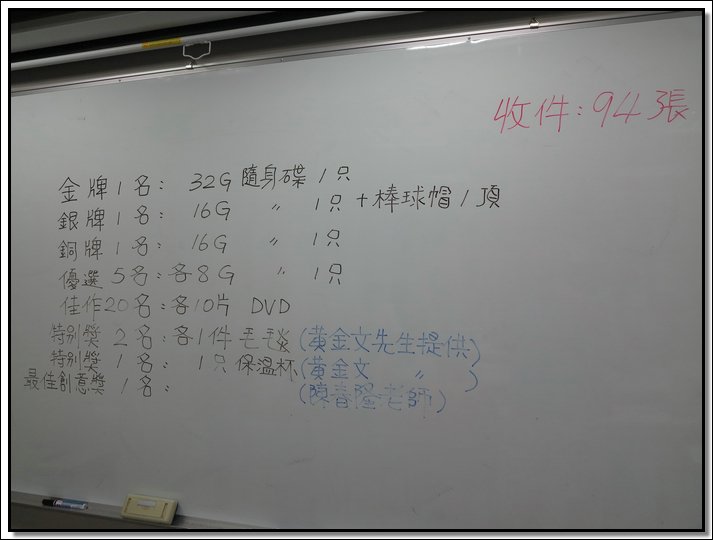 收件:94張
金牌1名: 32G 隨身碟 1只
銀牌1名: 16G 〃 1只 + 棒球帽1頂
銅牌1名: 16G 〃 1只
優選5名:各8G 〃 1只
佳作20名:各10片 DVD
特別獎 2名:各1件毛毯(黃金文先生提供)
特別獎 1名: 1只保溫杯(黃金文 〃 )
最佳創意獎 1名: (陳春隆老師)